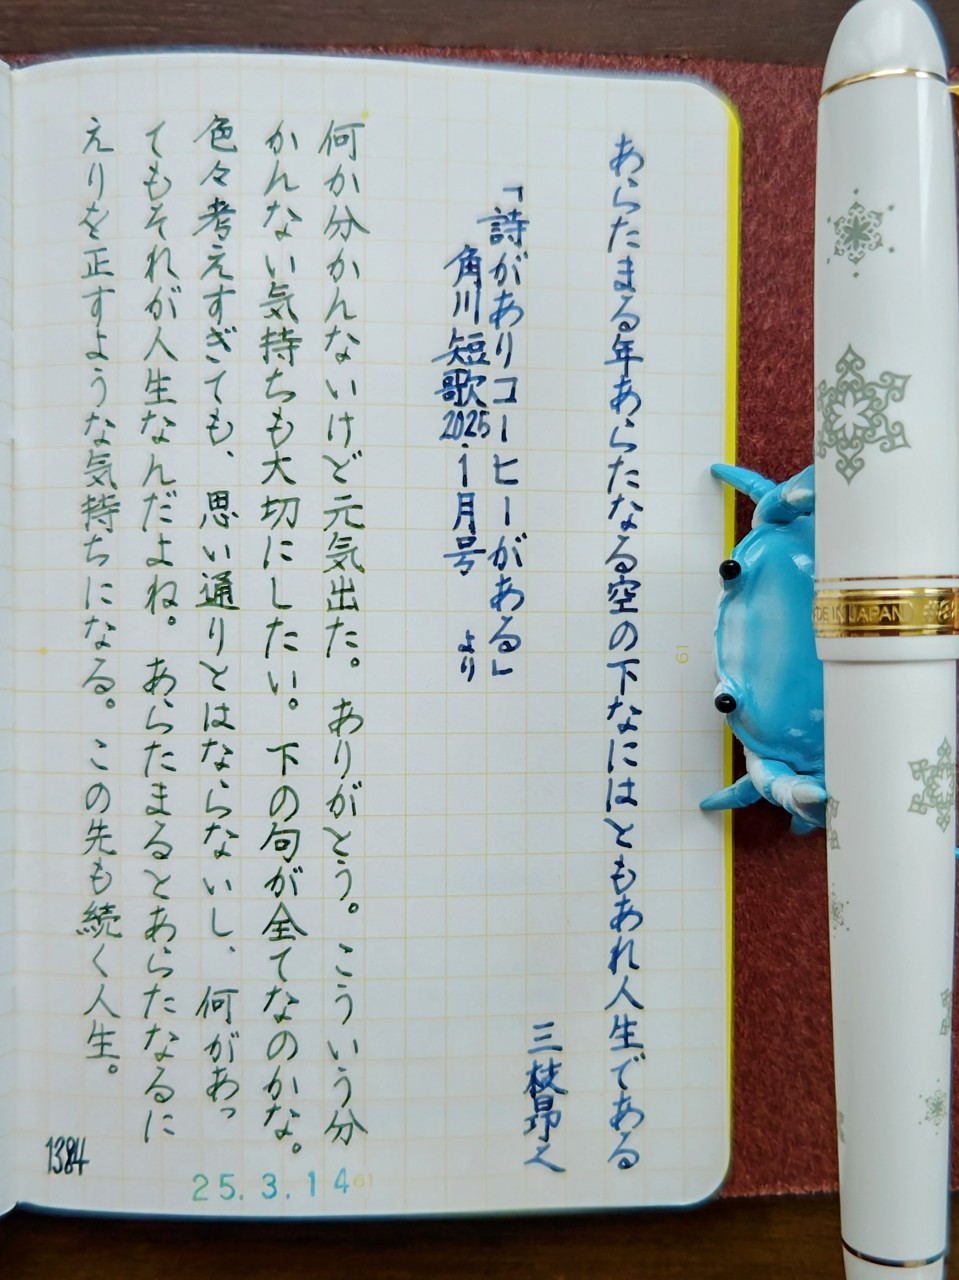 あらたまる年あらたなる空の下なにはともあれ人生である
三枝昻之
「詩がありコーヒーがある」
角川短歌2025.1月号 より
何か分かんないけど元気出た。ありがとう。こういう分
かんない気持ちも大切にしたい。下の句が全てなのかな。
色々考えすぎても、思い通りとはならないし、何があっ
てもそれが人生なんだよね。あらたまるとあらたなるに
えりを正すような気持ちになる。この先も続く人生。
1384
25.3.14
61
61
MADE IN JAPAN